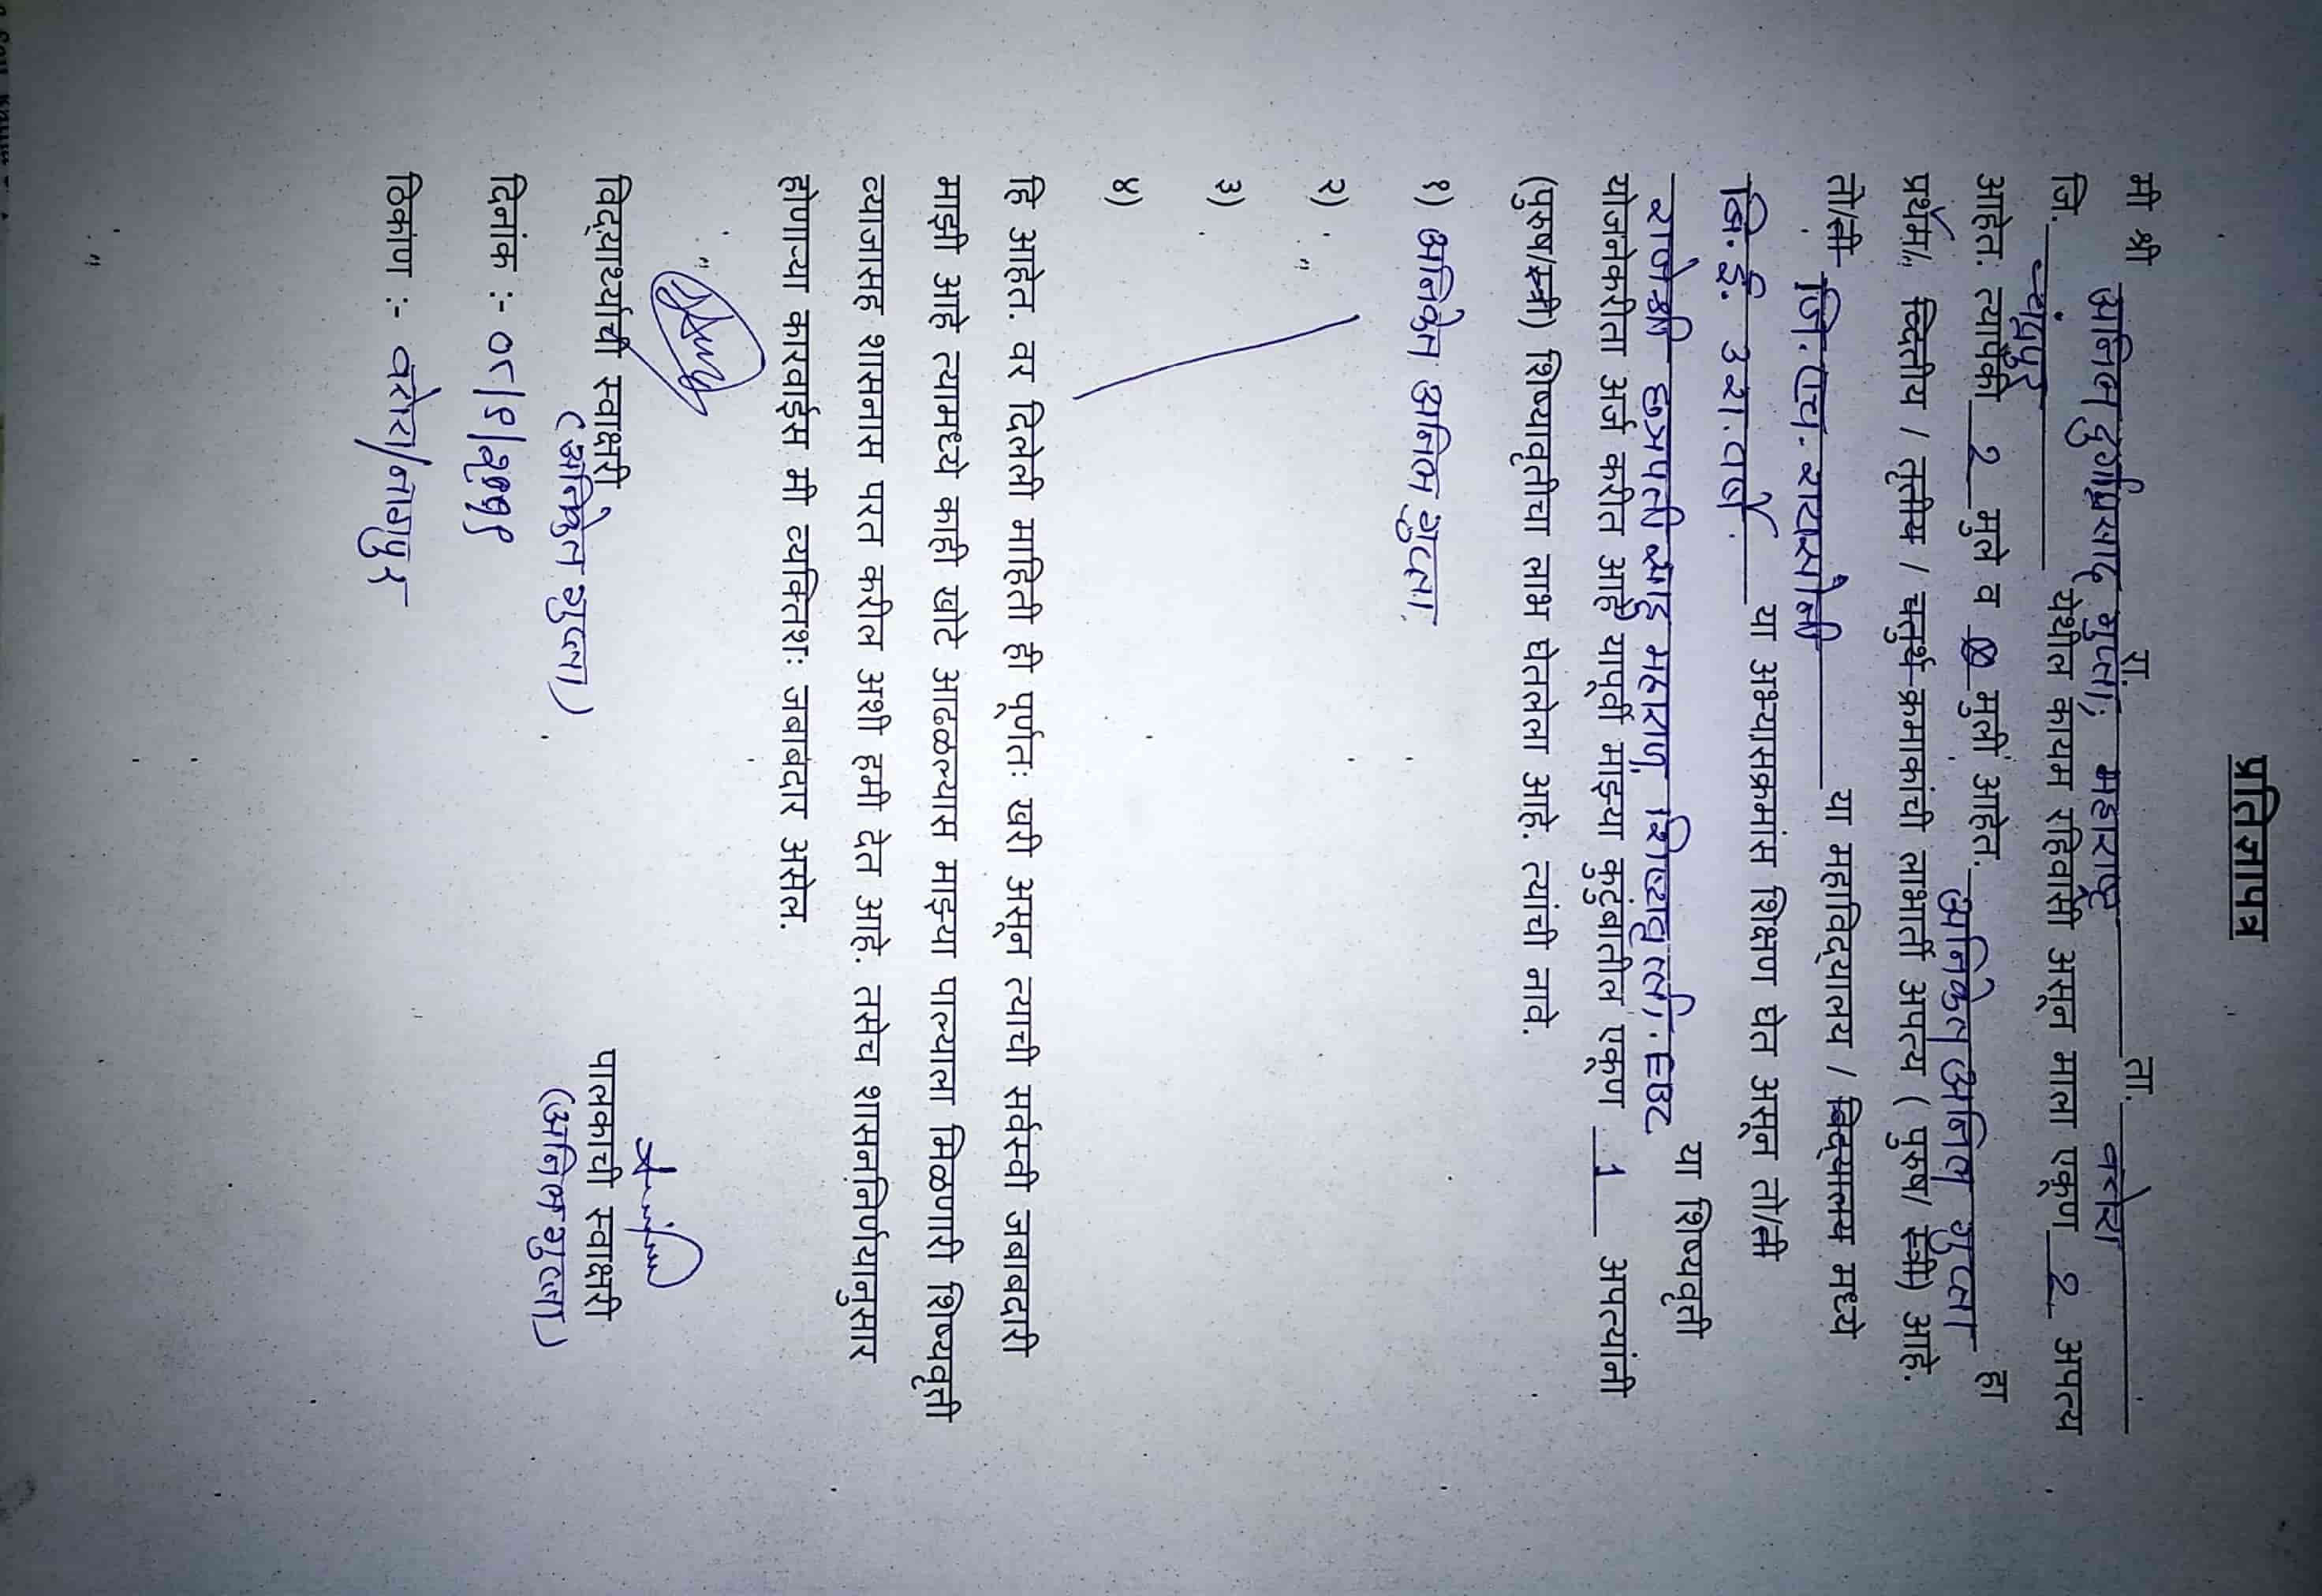 प्रतिज्ञापत्र
मी श्री अनिल दुर्गाप्रसाद शुक्ला, रा. महाराष्ट्र ता. वरोरा
जि. चंद्रपुर येथील कायम रहिवासी असून माला एकूण 2 अपत्य
आहेत. त्यापैकी 2 मुले व 0 मुली आहेत. अनिकेत अनिल शुक्ला हा
प्रथम/ व्दितीय / तृतीय / चतुर्थ क्रमाकांची लाभार्ती अपत्य ( पुरुष/ स्त्री) आहे.
तो/ती जि.एच. रायसोनी या महाविद्यालय / विद्यालय मध्ये
बि.ई. 3 रा.वर्ष या अभ्यासक्रमांस शिक्षण घेत असून तो/ती
राजेश्री छत्रपती शाहु महाराज शिष्यवृत्ती, EBC या शिष्यवृती
योजनेकरीता अर्ज करीत आहे यापूर्वी माझ्या कुटुंबातील एकूण 1 अपत्यांनी
(पुरुष/स्त्री) शिष्यावृतीचा लाभ घेतलेला आहे. त्यांची नावे.
१) अनिकेत अनिल शुक्ला.
२)
३)
४)
हि आहेत. वर दिलेली माहिती ही पूर्णतः खरी असून त्याची सर्वस्वी जवाबदारी
माझी आहे त्यामध्ये काही खोटे आढळल्यास माझ्या पाल्याला मिळणारी शिष्यवृती
व्याजासह शासनास परत करील अशी हमी देत आहे. तसेच शासननिर्णयानुसार
होणाऱ्या कारवाईस मी व्यक्तिशः जवाबंदार असेल.
विद्यार्थ्याची स्वाक्षरी पालकाची स्वाक्षरी
(अनिकेत शुक्ला) (अनिल शुक्ला)
दिनांक :- ०८/९/२०१९
ठिकाण :- वरोरा/नागपुर